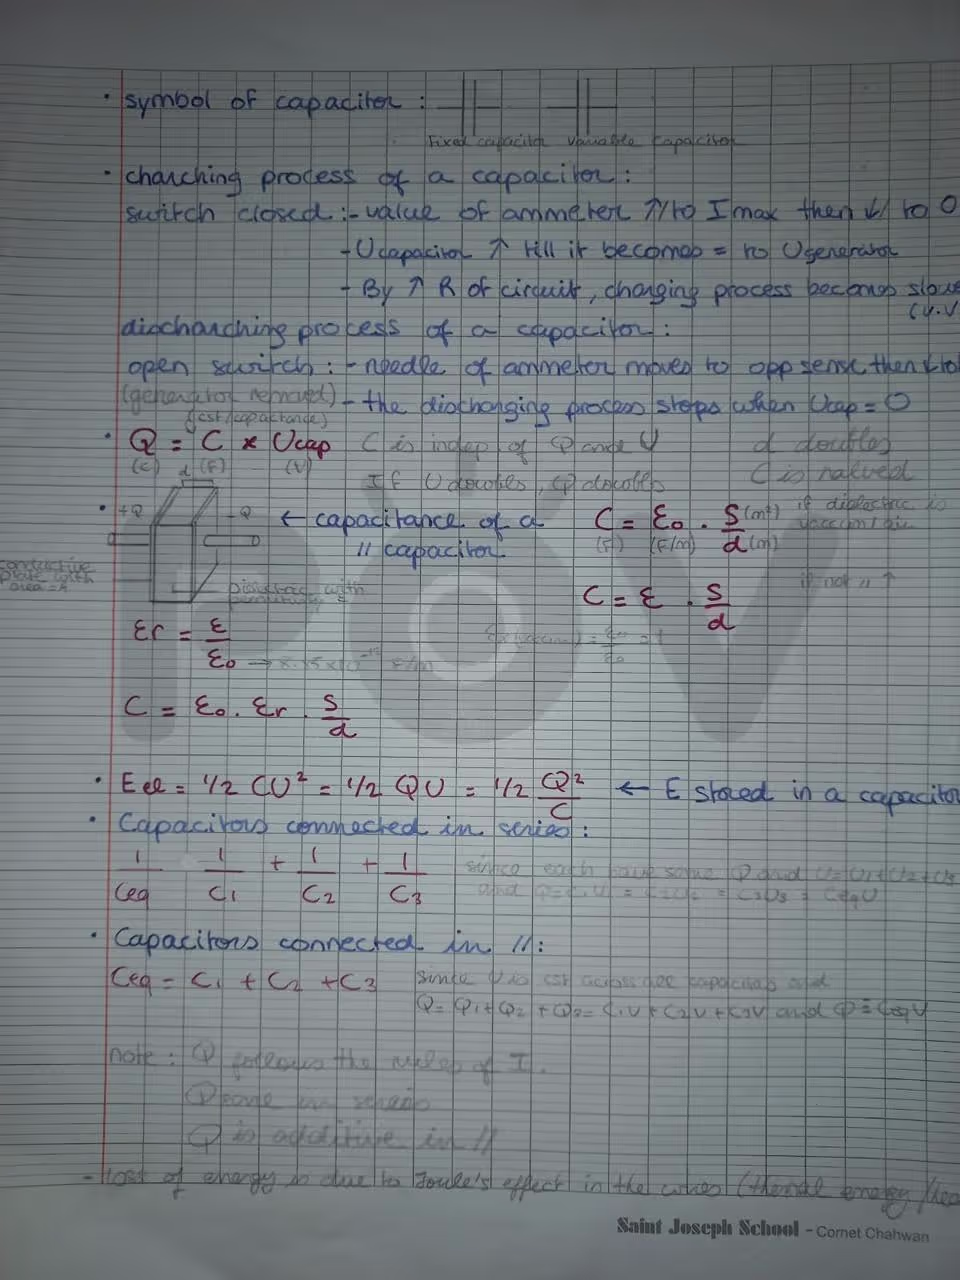 · symbol of capacitor :
Fixed capacitor variable capacitor
· charching process of a capacitor :
switch closed :- value of ammeter ↑ to I max then ↓ to 0
- Ucapacitor ↑ till it becomes = to Ugenerator
- By ↑ R of circuit, charging process becomes slow
(v.v
discharching process of a capacitor :
open switch : - needle of ammeter moves to opp sense then ↓ to
(generator removed) - the discharging process stops when Ucap = 0
(cst/capacitance)
· Q = C × Ucap C is indep of Q and U d doubles
(C) (F) (V) If U doubles, Q doubles C is halved
d
· +Q -Q ← capacitance of a // capacitor. C = ε0 . S/d if dielectric is vaccum/air
(F) (F/m) (m²) (m)
conductive plate with area = A
Dielectric with permittivity ε
C = ε . S/d if not // ↑
εr = ε/ε0
C = ε0 . εr . S/d
· Eel = 1/2 CU² = 1/2 QU = 1/2 Q²/C ← E stored in a capacitor
· Capacitors connected in series :
1/Ceq 1/C1 + 1/C2 + 1/C3 since each have same Q and U = U1 + U2 + U3
and Q = C1U1 = C2U2 = C3U3 = CeqU
· Capacitors connected in // :
Ceq = C1 + C2 + C3 since U is cst across all capacitors and
Q = Q1 + Q2 + Q3 = C1U + C2U + C3U and Q = CeqU
note : Q follows the rules of I.
Q same in series
Q is additive in //
- loss of energy is due to Joule's effect in the wires (thermal energy /hea
Saint Joseph School - Cornet Chahwan
POV